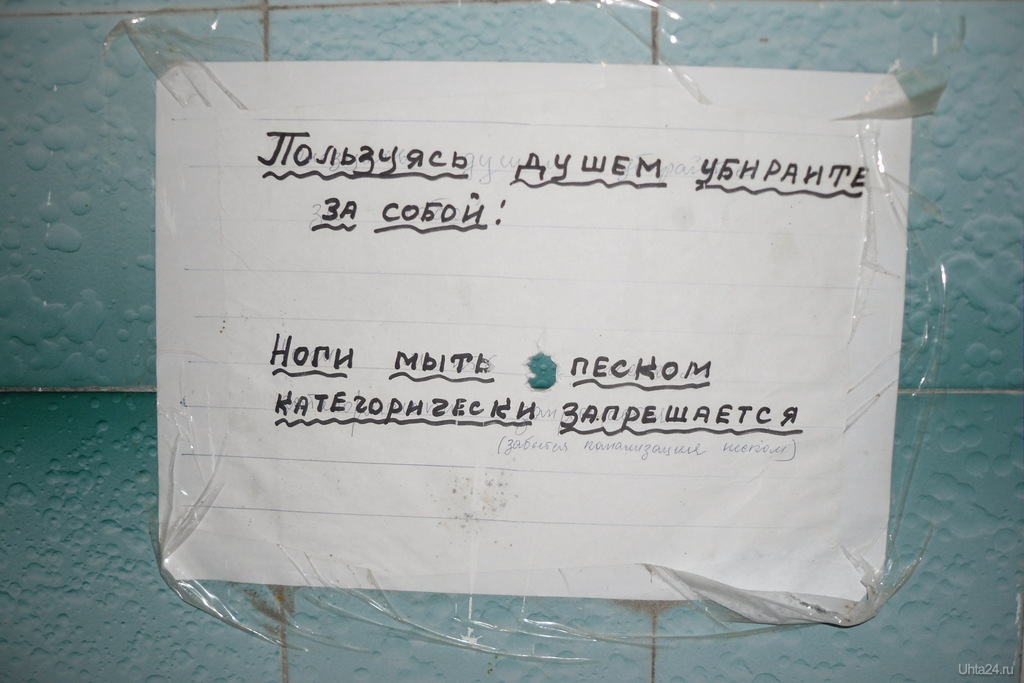 Пользуясь душем убирайте
за собой!
Ноги мыть песком
категорически запрещается
(забьется канализация песком)
Uhta24.ru